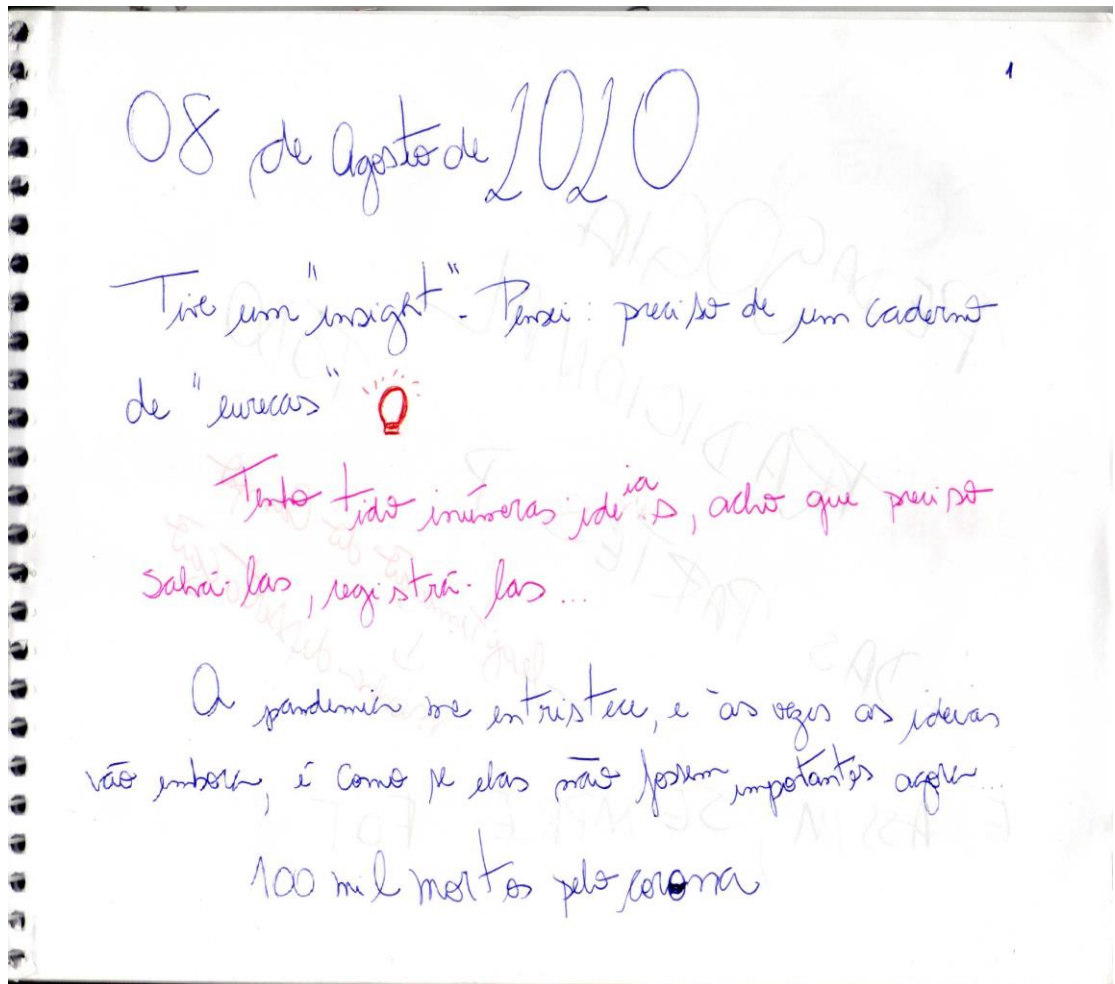 1
08 de Agosto de 2020
Tive um "insight" - Pensei: preciso de um caderno
de "eurecas"
Tenho tido inúmeras ideias, acho que preciso
salvá-las, registrá-las...
A pandemia me entristece, e às vezes as ideias
vão embora, é como se elas não fossem impotantes agora...
100 mil mortos pelo corona